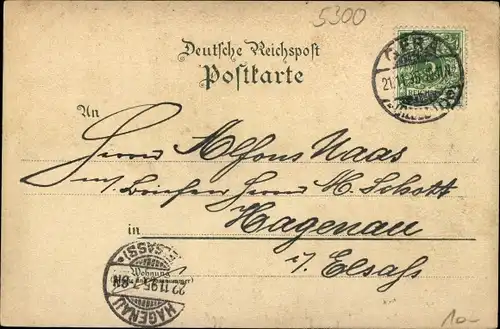 5300
Deutsche Reichspost
Postkarte
GERA
21.11.95
An
Herrn Alfons Haas
Herrn H. Schott
in Hagenau
i/ Elsaß
(ELSASS)
Wohnung
22.11.95
HAGENAU
10-